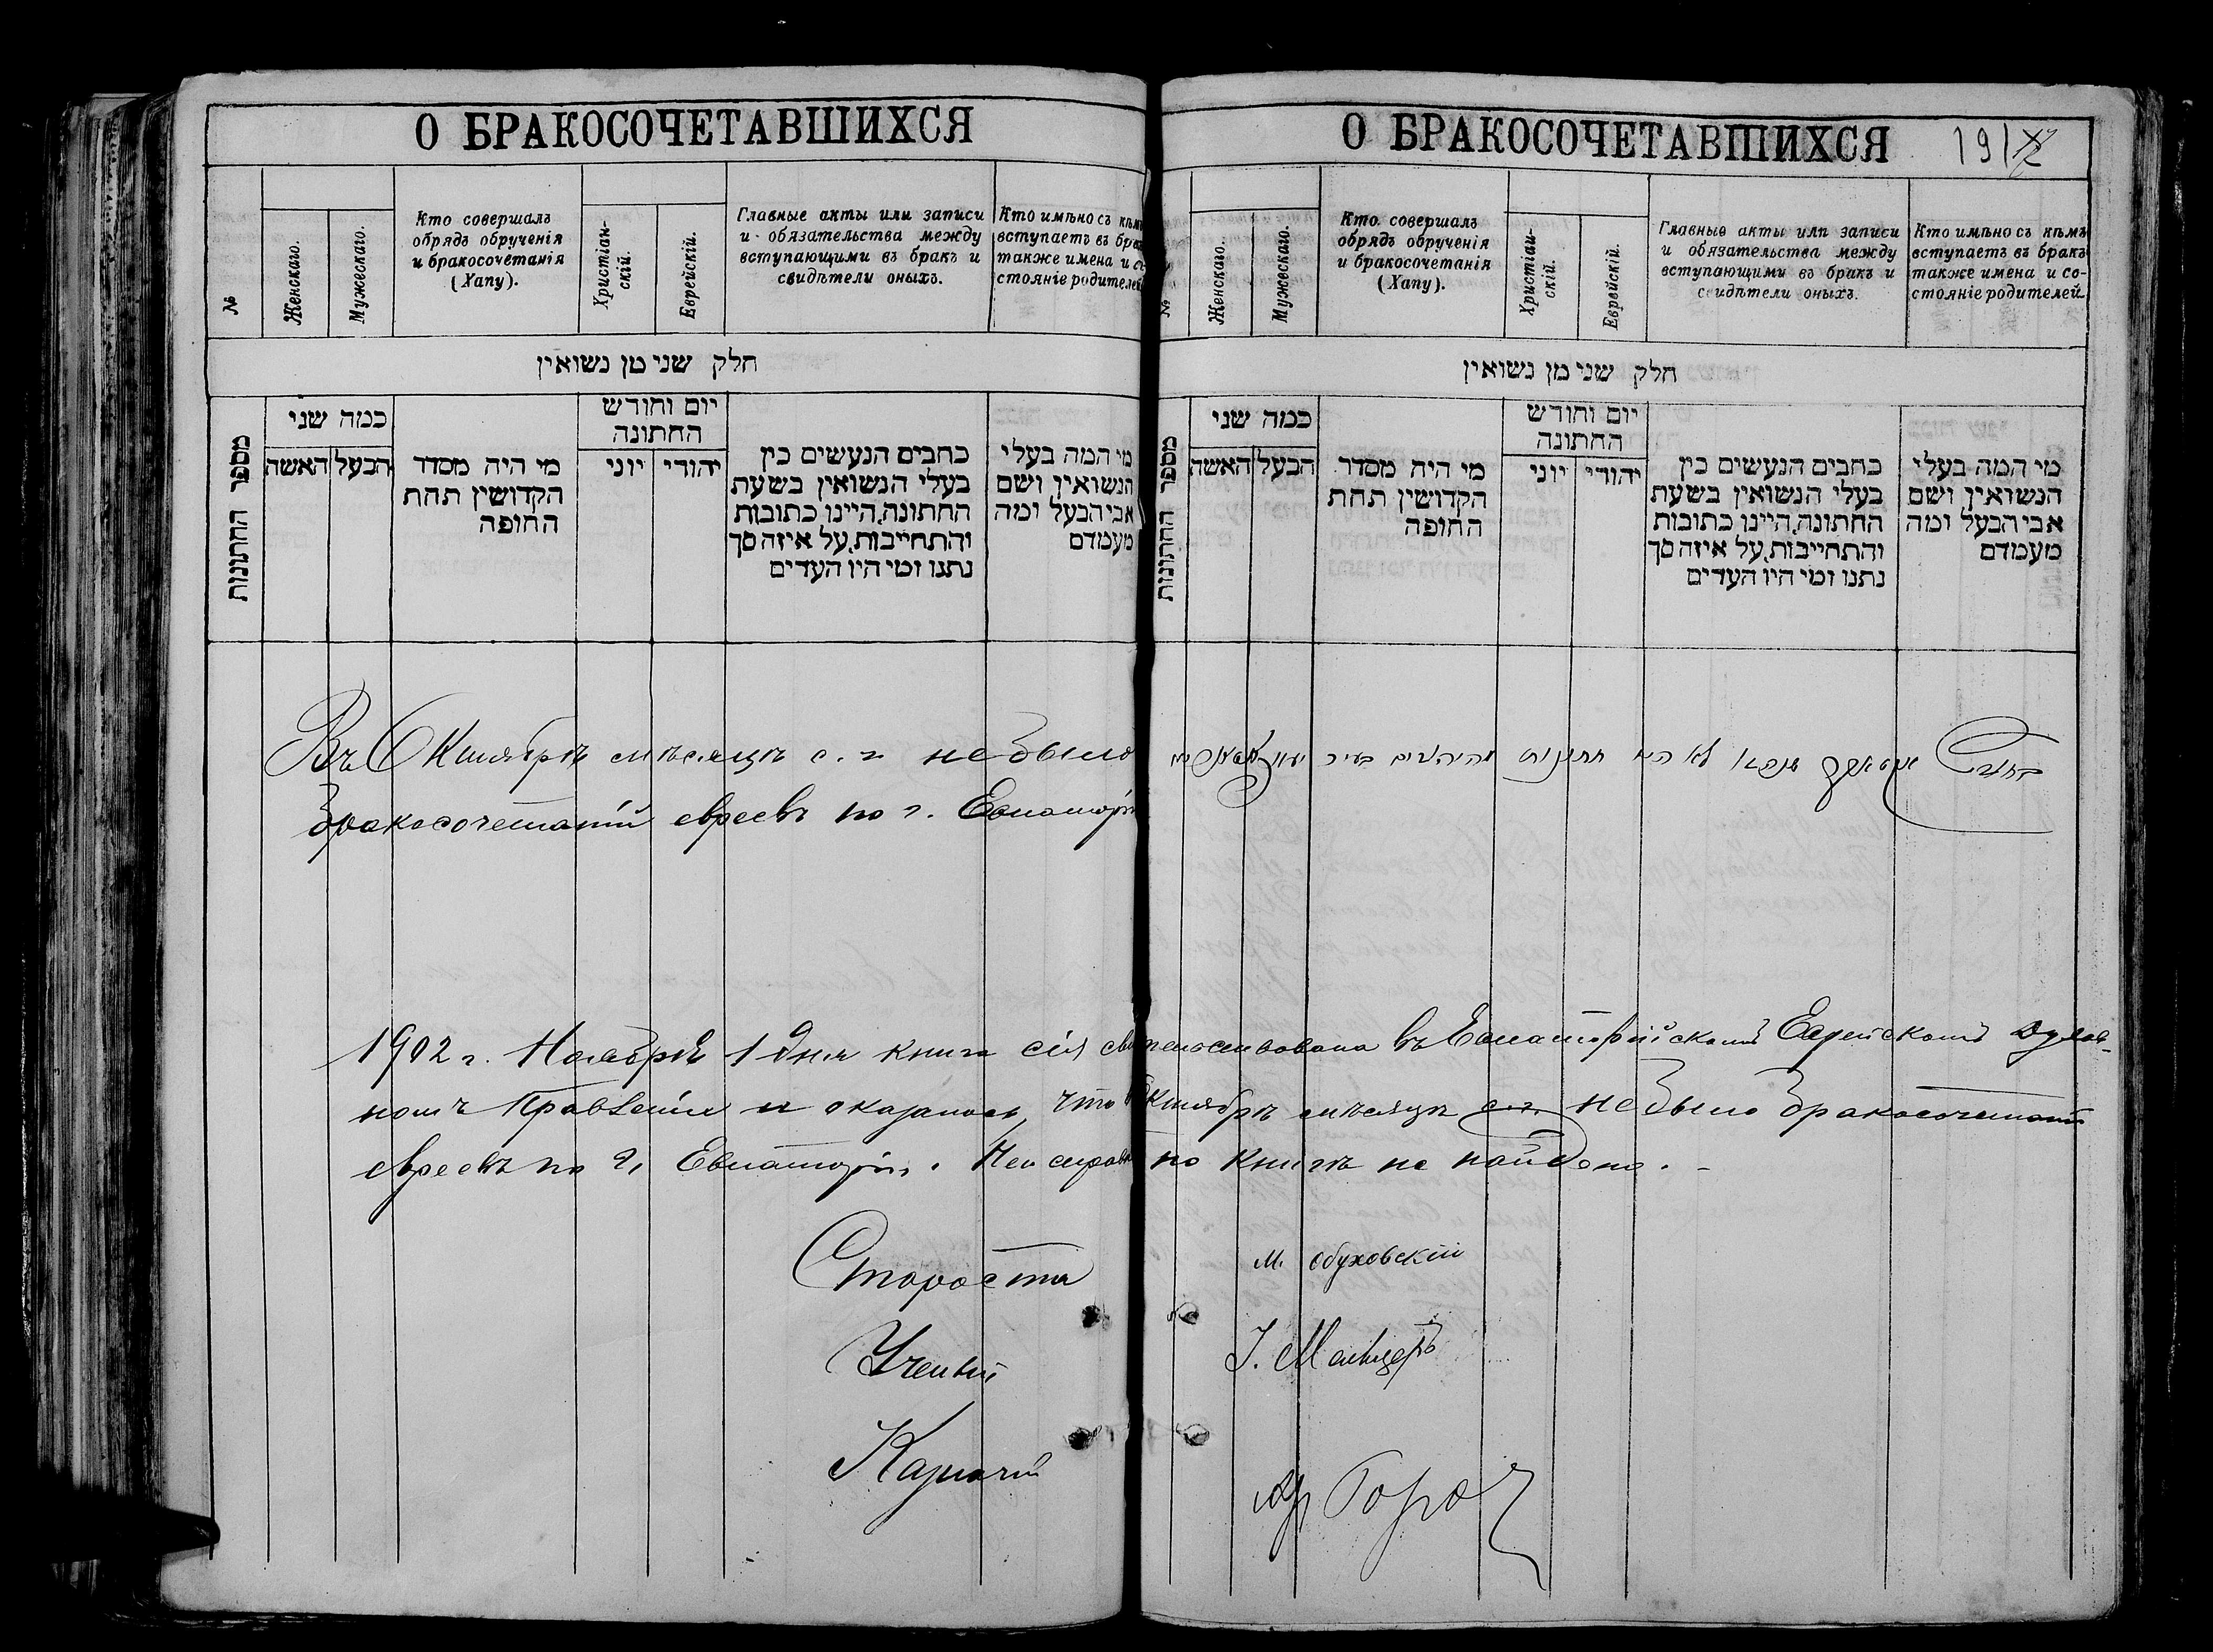 О БРАКОСОЧЕТАВШИХСЯ
№
Женскаго.
Мужескаго.
Кто совершалъ
обрядъ обрученія
и бракосочетанія
(Хапу).
Христіан-
скій.
Еврейскій.
Главные акты или записи
и обязательства между
вступающими въ бракъ и
свидѣтели оныхъ.
Кто имѣно съ кѣмъ
вступаетъ въ бра
также имена и с
стояніе родителей
חלק שני מן נשואין
מספר החתונות
כמה שני
האשה
הבעל
מי היה מסדר
הקדושין תחת
החופה
יום וחודש
החתונה
יוני
יהודי
כתבים הנעשים בין
בעלי הנשואין בשעת
החתונה, היינו כתובות
והתחייבות, על איזה סך
נתנו ומי היו העדים
מי המה בעלי
הנשואין ושם
אבי הבעל ומה
מעמדם
Въ Октябрѣ мѣсяцѣ с. г. не было
бракосочетаній евреевъ по г. Евпаторіи
О БРАКОСОЧЕТАВШИХСЯ
191
№
Женскаго.
Мужескаго.
Кто совершалъ
обрядъ обрученія
и бракосочетанія
(Хапу).
Христіан-
скій.
Еврейскій.
Главные акты или записи
и обязательства между
вступающими въ бракъ и
свидѣтели оныхъ.
Кто имѣно съ кѣмъ
вступаетъ въ бракъ
также имена и со-
стояніе родителей
חלק שני מן נשואין
מספר החתונות
כמה שני
האשה
הבעל
מי היה מסדר
הקדושין תחת
החופה
יום וחודש
החתונה
יוני
יהודי
כתבים הנעשים בין
בעלי הנשואין בשעת
החתונה, היינו כתובות
והתחייבות, על איזה סך
נתנו ומי היו העדים
מי המה בעלי
הנשואין ושם
אבי הבעל ומה
מעמדם
לא היו חתונות היהודים בעיר
1902 г. Ноября 1 дня книга сія свидѣтельствована въ Евпаторійскомъ Еврейскомъ Духов-
номъ Правленіи и оказалось, что въ Октябрѣ мѣсяцѣ с. г. не было бракосочетаній
евреевъ по г. Евпаторіи. Неисправн по книгѣ не найдено. -
Староста М. Обуховскій
Ученый
Казначей Горо